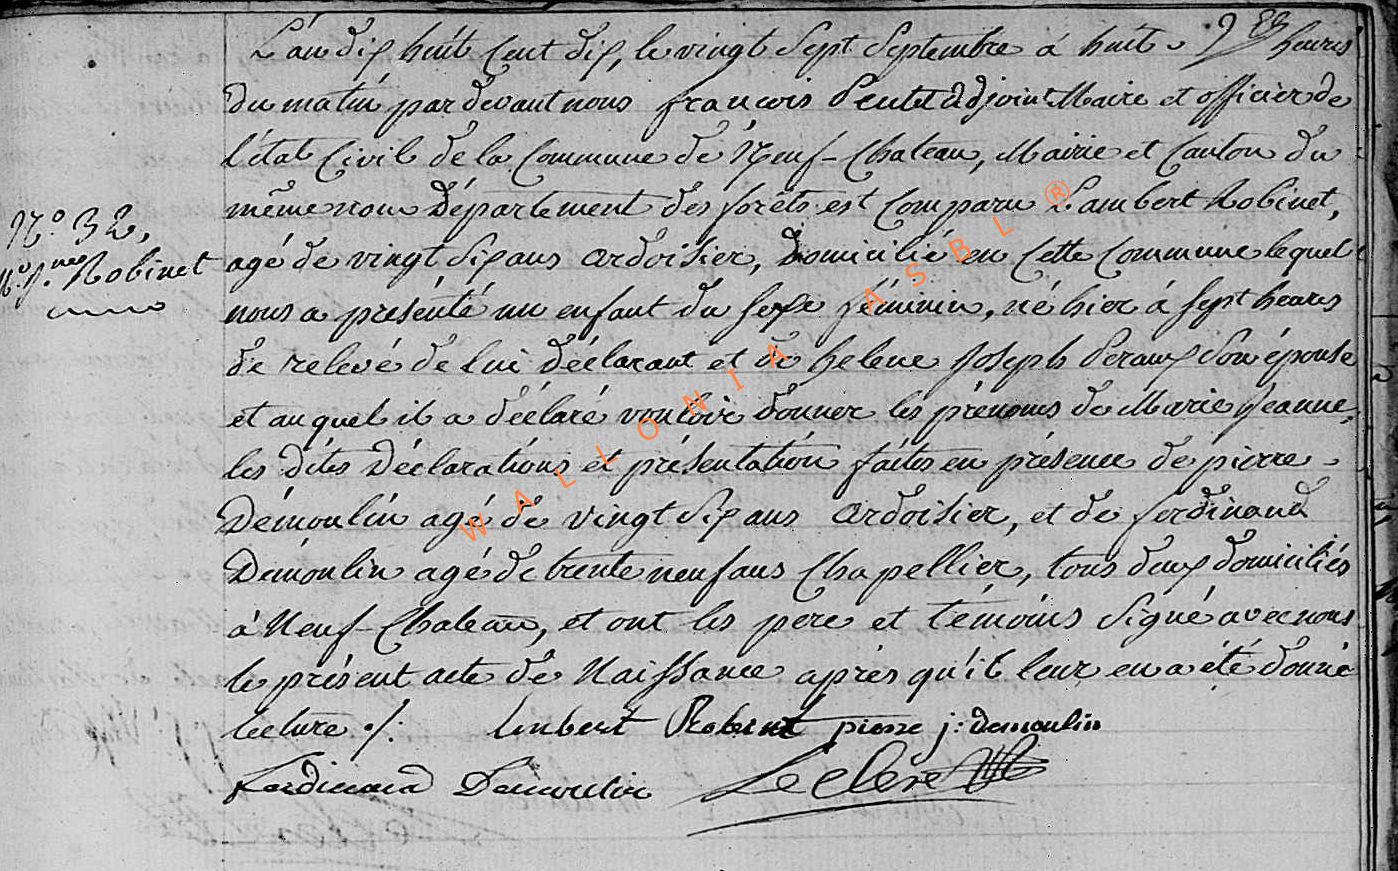 L'an dix huit cent dix, le vingt Sept Septembre à huit heures
du matin par devant nous françois adjoint Maire et officier de
l'état Civil de la Commune de Neuf-Chateau, Mairie et Canton du
même nom Département des forêts est Comparu Lambert Robinet,
agé de vingt Six ans ardoisier, Domicilié en Cette Commune lequel
nous a présenté un enfant du Sexe féminin, né hier à Sept heures
de relevé de lui déclarant et de helene Joseph Son épouse
et auquel il a déclaré vouloir donner les prénoms de Marie Jéanne,
les dites Déclarations et présentation faites en présence de pierre
Démoulin agé de vingt Six ans ardoisier, et de ferdinand
Démoulin agé de trente neuf ans Chapellier, tous deux domiciliés
à Neuf-Chateau, et ont les pere et témoins Signé avec nous
le présent acte de Naissance après qu'il leur en a été donné
lecture ./.
lmbert Robinet pierre j: demoulin
ferdinand Demoulin Leclere
N.° 32,
Robinet
WALLONIA ASBL ®